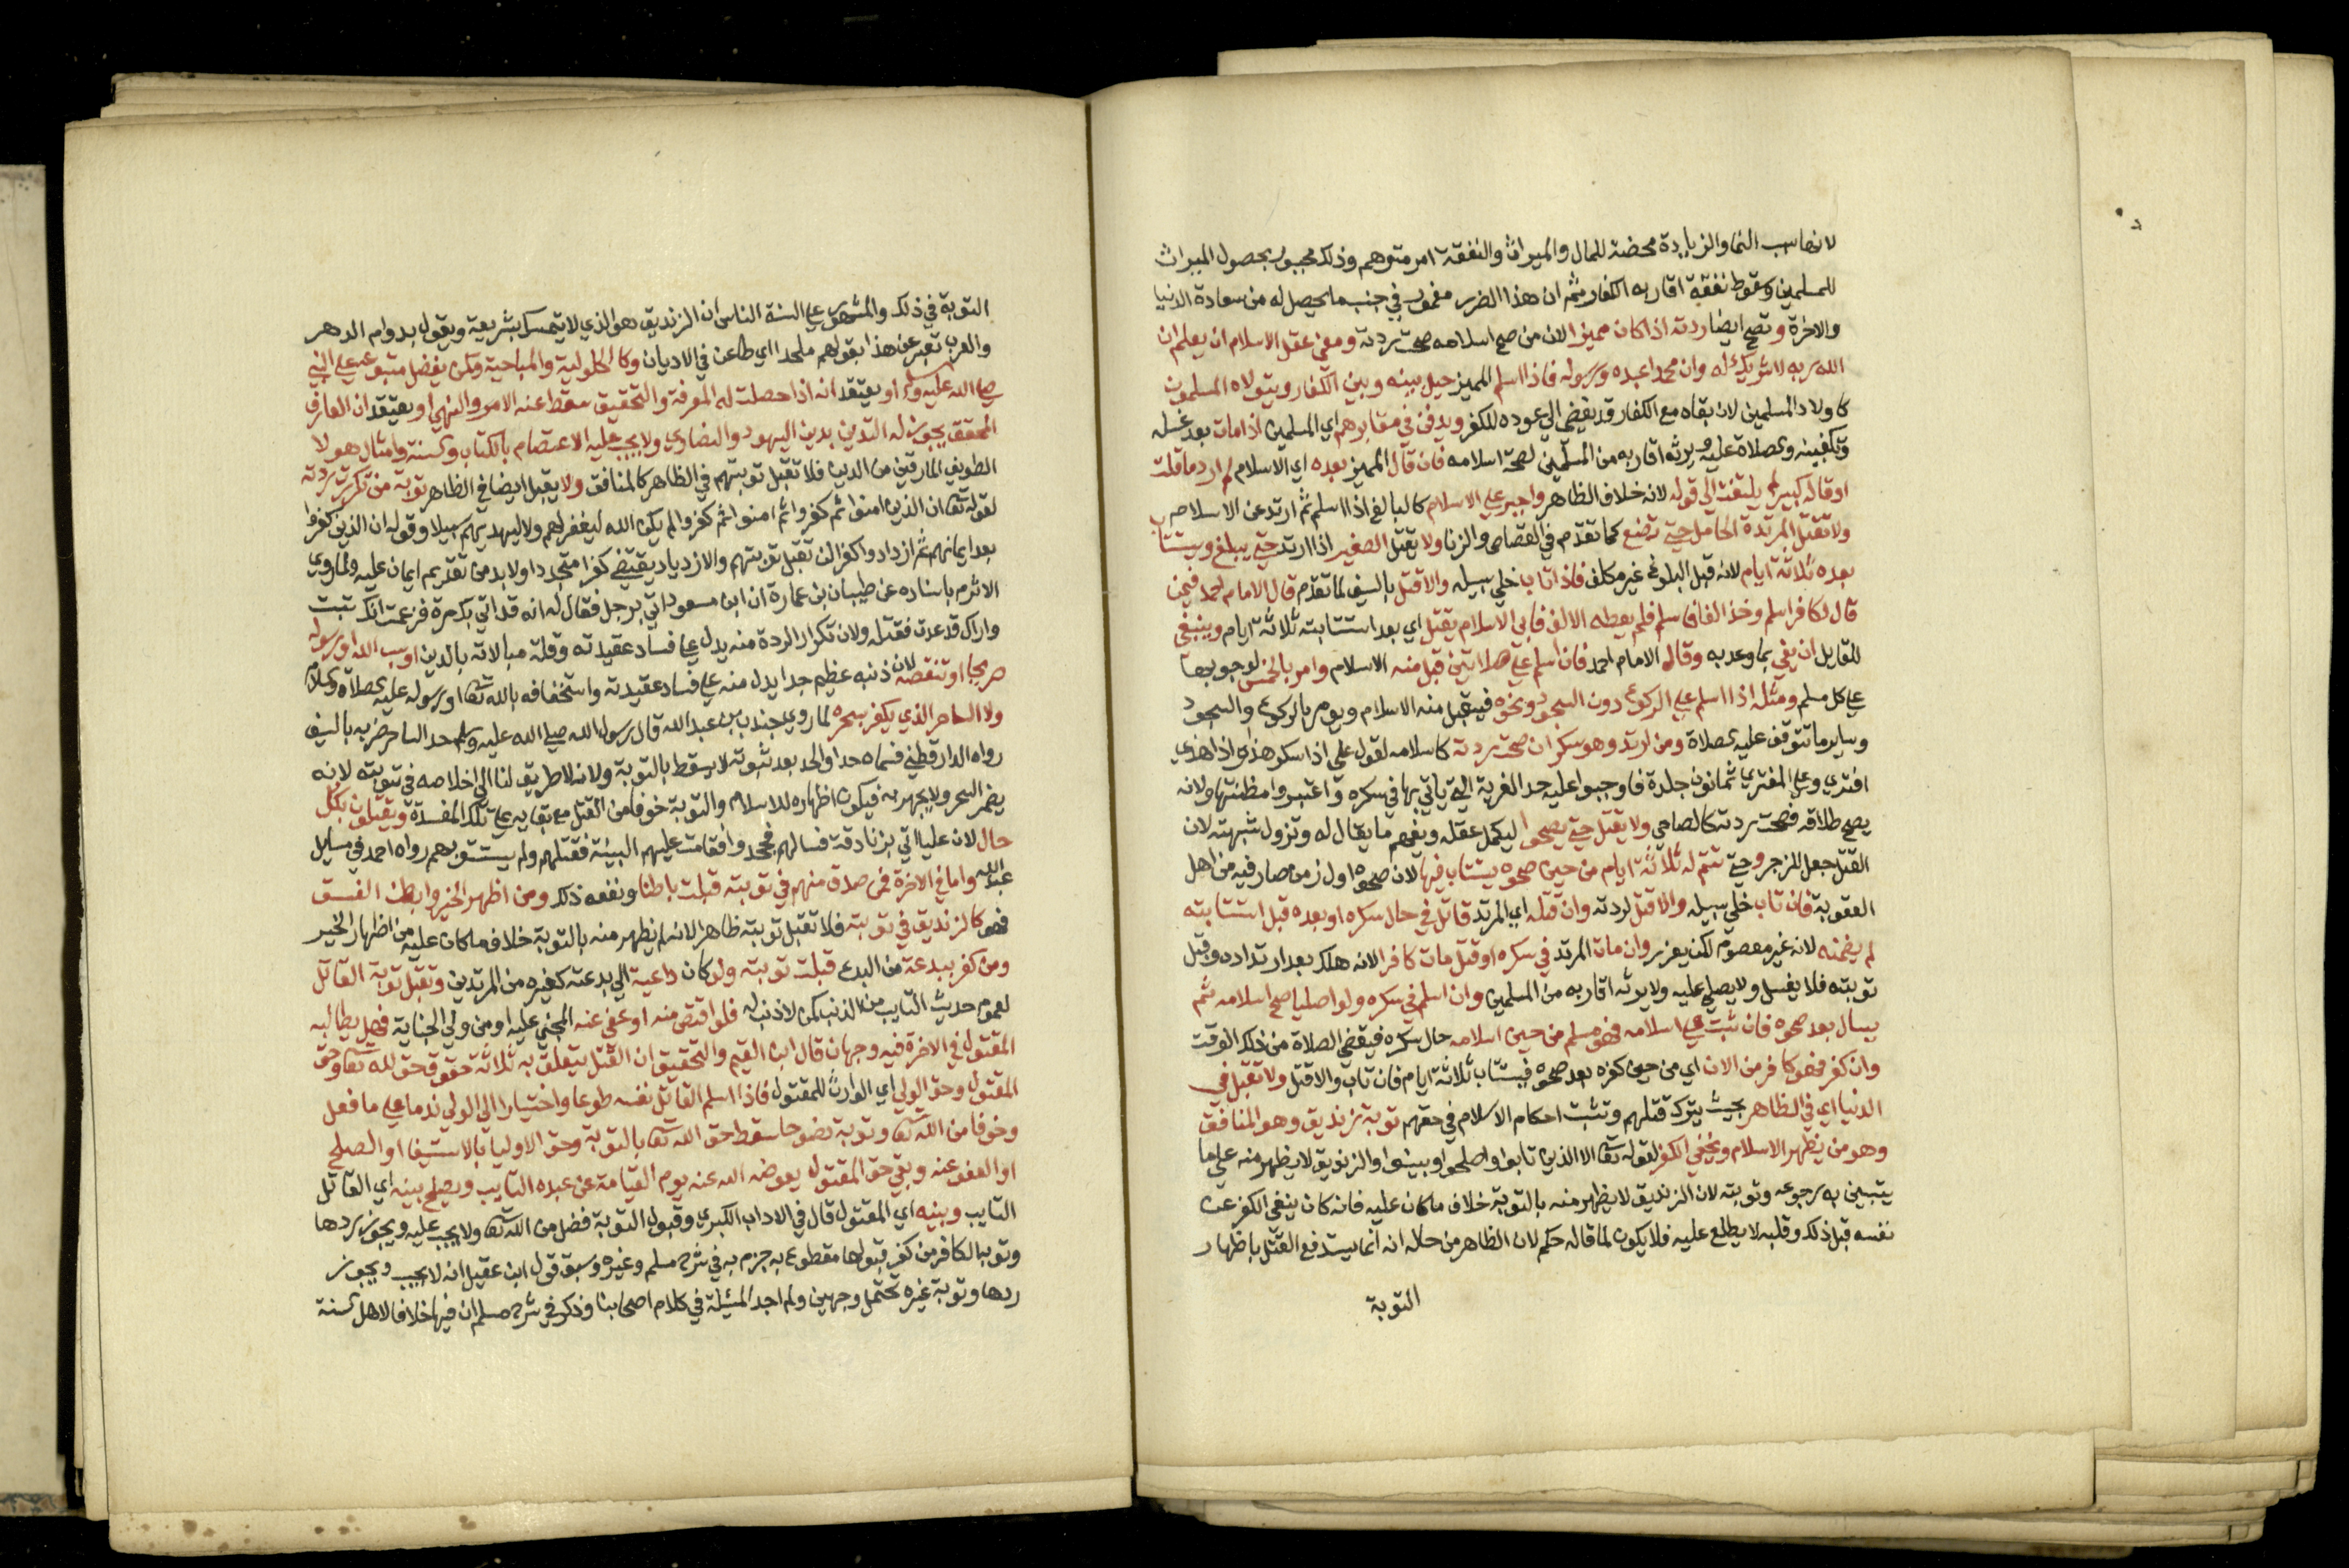 لانها سبب النما والزيادة محضة للمال والميراث والنفقة امر متوهم وذلك مجبور بحصول الميراث
للمسلمين وسقوط نفقة اقاربه الكفار ثم ان هذا الضرر مغمور في جنب ما يحصل له من سعادة الدنيا
والاخرة وتصح ايضا ردته اذا كان مميزا لان من صح اسلامه صحت ردته ومعنى عقل الاسلام ان يعلم ان
الله ربه لا شريك له وان محمدا عبده ورسوله فاذا اسلم المميز حيل بينه وبين الكفار ويتولاه المسلمون
كاولاد المسلمين لان بقاه مع الكفار قد يفضي الي عوده للكفر ويدفن في مقابرهم اي المسلمين اذا مات بعد غسله
وتكفينه والصلاة عليه ويرثه اقاربه من المسلمين لصحة اسلامه فان قال المميز بعده اي الاسلام لم ارد ما قلت
او قاله كبير لم يلتفت الي قوله لانه خلاف الظاهر واجبر علي الاسلام كالبالغ اذا اسلم ثم ارتد عن الاسلام
ولا تقتل المرتدة الحامل حتي تضع كما تقدم في القصاص والزنا ولا يقتل الصغير اذا ارتد حتي يبلغ ويستتاب
بعده ثلاثة ايام لانه قبل البلوغ غير مكلف فاذا تاب خلي سبيله والا قتل بالسيف لما تقدم قال الامام احمد فيمن
قال لكافر اسلم وخذ الفا فاسلم فلم يعطه الالف فابي الاسلام يقتل اي بعد استتابته ثلاثة ايام وينبغي
للقايل ان يفي بما وعد به وقال الامام احمد فان اسلم علي صلاتين قبل منه الاسلام وامر بالخمس لوجوبها
علي كل مسلم ومثله اذا اسلم علي الركوع دون السجود ونحوه فيقبل منه الاسلام ويومر بالركوع والسجود
وساير ما تتوقف عليه الصلاة ومن ارتد وهو سكران صحت ردته كاسلامه لقول علي اذا سكر هذي واذا هذي
افتري وعلي المفتري ثمانون جلدة فاوجبوا عليه حد الفرية التي ياتي بها في سكره واعتبروا مظنتها ولانه
يصح طلاقه فصحت ردته كالصاحي ولا يقتل حتي يصحوا ليكمل عقله ويفهم ما يقال له وتزول شبهته لان
القتل جعل للزجر وحتي تتم له ثلاثة ايام من حين صحوه يستتاب فيها لان صحوه اول زمن صار فيه من اهل
العقوبة فان تاب خلي سبيله والا قتل لردته وان قتله اي المرتد قاتل في حال سكره او بعده قبل استتابته
لم يضمنه لانه غير معصوم لكن يعزر وان مات المرتد في سكره او قتل مات كافرا لانه هلك بعد ارتداده وقبل
توبته فلا يغسل ولا يصلي عليه ولا يرثه اقاربه من المسلمين وان اسلم في سكره ولو اصليا صح اسلامه ثم
يسال بعد صحوه فان ثبت علي اسلامه فهو مسلم من حين اسلامه حال سكره فيقضي الصلاة من ذلك الوقت
وان كفر فهو كافر من الان اي من حين كفره بعد صحوه فيستتاب ثلاثة ايام فان تاب والا قتل ولا تقبل في
الدنيا اي في الظاهر بحيث يترك قتلهم وتثبت احكام الاسلام في حقهم توبة زنديق وهو المنافق
وهو من يظهر الاسلام ويخفي الكفر لقوله تعا الا الذين تابوا واصلحوا وبينوا والزنديق لا يظهر منه علي ما
يتبين به رجوعه وتوبته لان الزنديق لا يظهر منه بالتوبة خلاف ما كان عليه فانه كان ينفي الكفر عن
نفسه قبل ذلك وقلبه لا يطلع عليه فلا يكون لما قاله حكم لان الظاهر من حاله انه انما يستدفع القتل باظهار
التوبة
التوبة في ذلك والمشهور علي السنة الناس ان الزنديق هو الذي لا يتمسك بشريعة ويقول بدوام الدهر
والعرب تعبر عن هذا بقولهم ملحدا اي طاعن في الاديان وكالحلولية والمباحية وكمن يفضل متبوعه علي النبي
صلي الله عليه وسلم او يعتقد انه اذا حصلت له المعرفة والتحقيق سقط عنه الامر والنهي او يعتقد ان العارف
المحقق يجوز له التدين بدين اليهود والنصاري ولا يجب عليه الاعتصام بالكتاب والسنة وامثال هولا
الطوايف المارقين من الدين فلا تقبل توبتهم في الظاهر كالمنافق ولا يقبل ايضا في الظاهر توبة من تكررت ردته
لقوله تعا ان الذين امنوا ثم كفروا ثم امنوا ثم كفروا لم يكن الله ليغفر لهم ولا ليهديهم سبيلا وقوله ان الذين كفروا
بعد ايمانهم ثم ازدادوا كفرا لن تقبل توبتهم والازدياد يقتضي كفرا متجددا ولا بد من تقديم ايمان عليه ولما روي
الاثرم باسناده عن ظبيان بن عمارة ان ابن مسعود اتي برجل فقال له انه قد اتي بك مرة فزعمت انك تبت
واراك قد عدت فقتله ولان تكرار الردة منه يدل علي فساد عقيدته وقلة مبالاته بالدين او سب الله او رسوله
صريحا او تنقصه لان ذنبه عظيم جدا يدل منه علي فساد عقيدته واستخفافه بالله تعا او رسوله عليه الصلاة والسلام
ولا الساحر الذي يكفر بسحره لما روي جندب بن عبد الله قال رسول الله صلي الله عليه وسلم حد الساحر ضربه بالسيف
رواه الدارقطني فسماه حدا والحد بعد ثبوته لا يسقط بالتوبة ولانه لا طريق لنا الي اخلاصه في توبته لانه
يضمر السحر ولا يجهر به فيكون اظهاره للاسلام والتوبة خوفا من القتل مع بقايه علي تلك المفسدة ويقتلون بكل
حال لان عليا اتي بزنادقة فسالهم فجحدوا فقامت عليهم البينة فقتلهم ولم يستتوبهم رواه احمد في مسايل
عبد الله واما في الاخرة فمن صدق منهم في توبته قبلت باطنا ونفعه ذلك ومن اظهر الخير وابطن الفسق
فهو كالزنديق في توبته فلا تقبل توبته ظاهرا لانه لم يظهر منه بالتوبة خلاف ما كان عليه من اظهار الخير
ومن كفر ببدعة من البدع قبلت توبته ولو كان داعية الي بدعته كغيره من المرتدين وتقبل توبة القاتل
لعموم حديث التايب من الذنب كمن لا ذنب له فلو اقتص منه او عفي عنه المجني عليه او من ولي الجناية فهل يطالبه
المقتول في الاخرة فيه وجهان قال ابن القيم والتحقيق ان القتل يتعلق به ثلاثة حقوق حق لله تعا وحق
المقتول وحق الولي اي الوارث للمقتول فاذا اسلم القاتل نفسه طوعا واختيارا الي الولي ندما علي ما فعل
وخوفا من الله تعا وتوبة نصوحا سقط حق الله تعا بالتوبة وحق الاوليا بالاستيفا او الصلح
او العفو عنه وبقي حق المقتول يعوضه الله عنه يوم القيامة عن عبده التايب ويصلح بينه اي القاتل
التايب وبينه اي المقتول قال في الاداب الكبري وقبول التوبة فضل من الله تعا ولا يجب عليه ويجوز ردها
وتوبة الكافر من كفره قبولها مقطوع به جزم به في شرح مسلم وغيره وسبق قول ابن عقيل انه لا يجب ويجوز
ردها وتوبة غيره تحتمل وجهين ولم اجد المسئلة في كلام اصحابنا وذكر في شرح مسلم ان فيها خلافا لاهل السنة